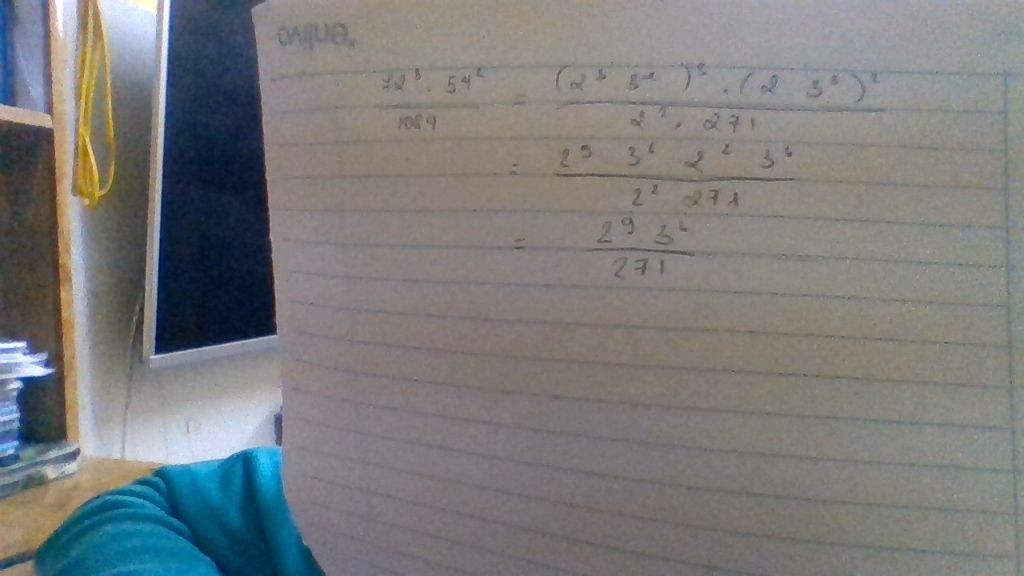 72³ · 54² / 1084 = (2³ 3²)³ · (2 3³)² / 2² · 271
= 2⁹ 3⁶ 2² 3⁶ / 2² 271
= 2⁹ 3⁶ / 271